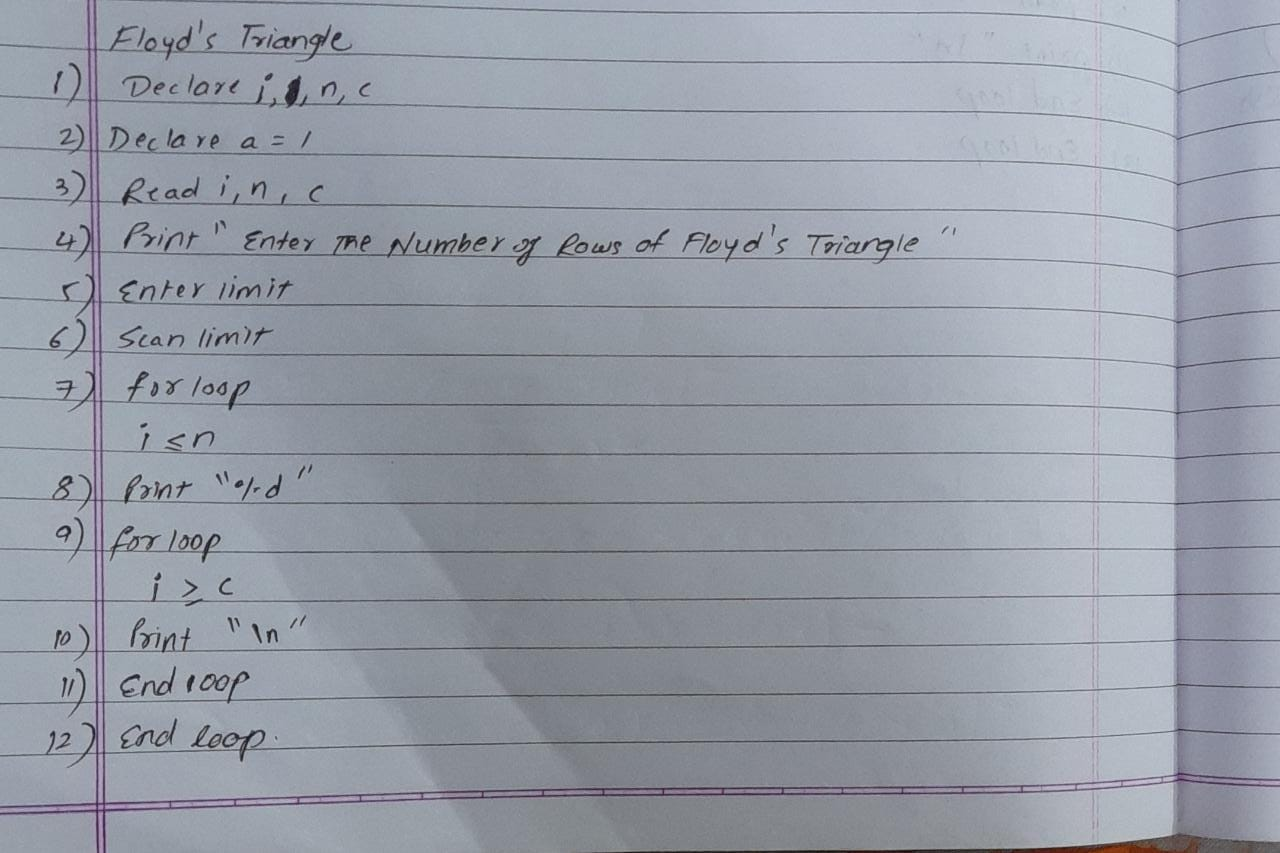 Floyd's Triangle
1) Declare i, n, c
2) Declare a = 1
3) Read i, n, c
4) Print " Enter The Number of Rows of Floyd's Triangle "
5) Enter limit
6) Scan limit
7) for loop
i ≤ n
8) Print "%d"
9) for loop
i ≥ c
10) Print "\n"
11) End loop
12) End loop.